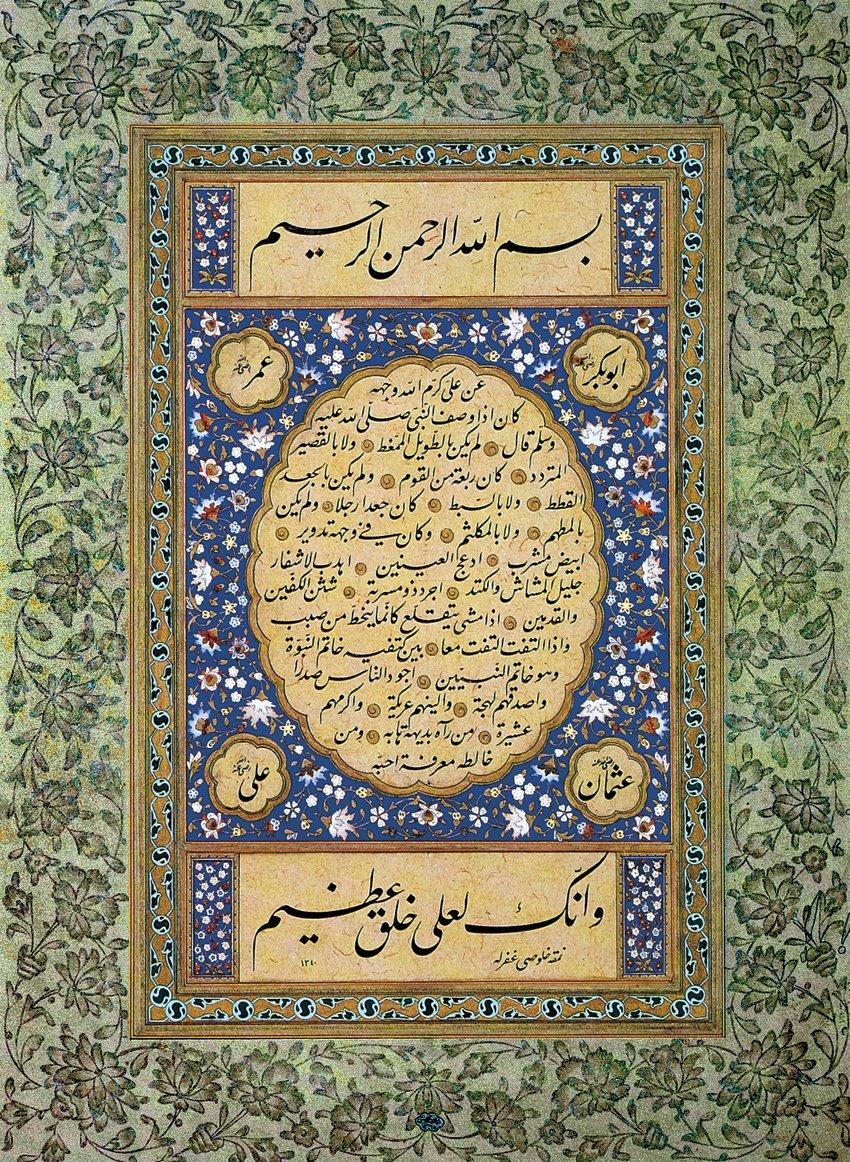 بسم الله الرحمن الرحيم
ابوبكر رضي الله عنه
عمر رضي الله عنه
عن علي كرم الله وجهه
كان اذا وصف النبي صلى الله عليه
وسلم قال لم يكن بالطويل الممغط ولا بالقصير
المتردد كان ربعة من القوم ولم يكن بالجعد
القطط ولا بالسبط كان جعدا رجلا ولم يكن
بالمطهم ولا بالمكلثم وكان في وجهه تدوير
ابيض مشرب ادعج العينين اهدب الاشفار
جليل المشاش والكتد اجرد ذو مسربة شثن الكفين
والقدمين اذا مشى يتقلع كانما ينحط من صبب
واذا التفت التفت معا بين كتفيه خاتم النبوة
وهو خاتم النبيين اجود الناس صدرا
واصدقهم لهجة والينهم عريكة واكرمهم
عشيرة من رآه بديهة هابه ومن
خالطه معرفة احبه
عثمان رضي الله عنه
علي رضي الله عنه
وانّك لعلى خلق عظيم
نمقه خلوصي غفرله
١٣٨٠